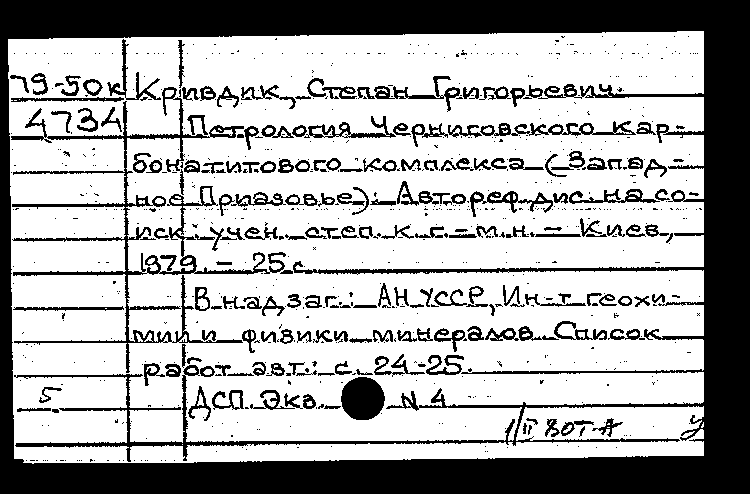 79-50к Кривдик, Степан Григорьевич.
4734 Петрология Черниговского кар-
бонатитового комплекса (Запад-
ное Приазовье): Автореф. дис. на со-
иск. учен. степ. к. г.-м. н. - Киев,
1979. - 25 с.
В надзаг.: АН УССР, Ин-т геохи-
мии и физики минералов. Список
работ авт.: с. 24-25.
5. ДСП. Экз. N 4
1/II